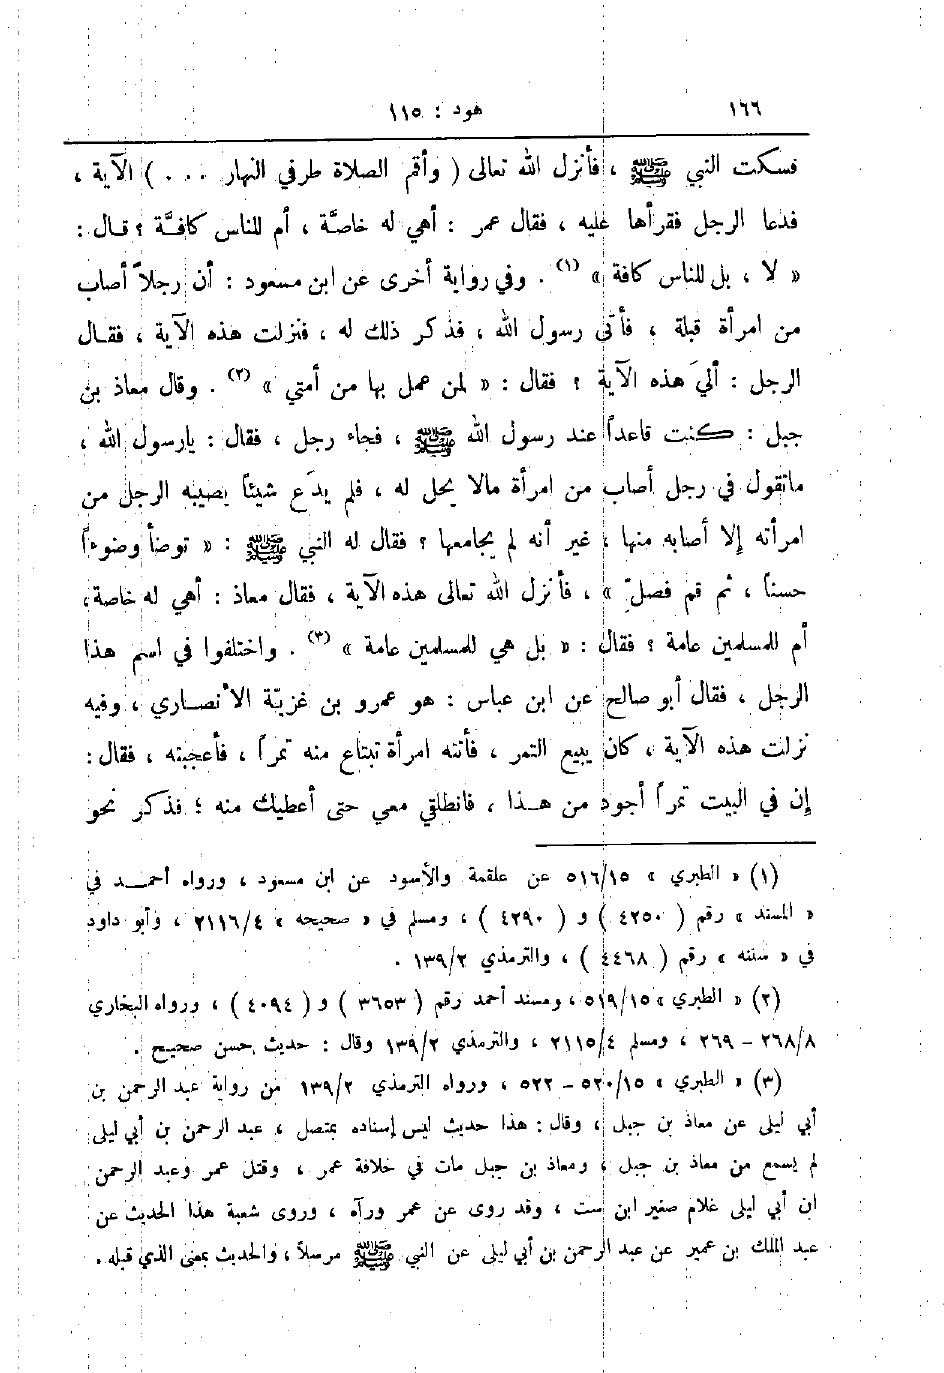 ١٦٦
هود : ١١٥
فسكت النبي ﷺ ، فأنزل الله تعالى ( وأقم الصلاة طرفي النهار . . . ) الآية ،
فدعا الرجل فقرأها عليه ، فقال عمر : أهي له خاصَّة ، أم للناس كافَّة ؟ قال :
« لا ، بل للناس كافة » (١) . وفي رواية أخرى عن ابن مسعود : أن رجلاً أصاب
من امرأة قبلة ، فأتى رسول الله ، فذكر ذلك له ، فنزلت هذه الآية ، فقال
الرجل : أليَ هذه الآية ؟ فقال : « لمن عمل بها من أمتي » (٢) . وقال معاذ بن
جبل : كنت قاعداً عند رسول الله ﷺ ، فجاء رجل ، فقال : يارسول الله ،
ماتقول في رجل أصاب من امرأة مالا يحل له ، فلم يدَع شيئاً يصيبه الرجل من
امرأته إلا أصابه منها ، غير أنه لم يجامعها ؟ فقال له النبي ﷺ : « توضأ وضوءاً
حسناً ، ثم قم فصلِّ » ، فأنزل الله تعالى هذه الآية ، فقال معاذ : أهي له خاصة،
أم للمسلمين عامة ؟ فقال : « بل هي للمسلمين عامة » (٣) . واختلفوا في اسم هذا
الرجل ، فقال أبو صالح عن ابن عباس : هو عمرو بن غزيّة الأنصاري ، وفيه
نزلت هذه الآية ، كان يبيع التمر ، فأتته امرأة تبتاع منه تمراً ، فأعجبته ، فقال :
إن في البيت تمراً أجود من هذا ، فانطلقي معي حتى أعطيك منه ؛ فذكر نحو
(١) « الطبري » ٥١٦/١٥ عن علقمة والأسود عن ابن مسعود ، ورواه أحمد في
« المسند » رقم ( ٤٢٥٠ ) و ( ٤٢٩٠ ) ، ومسلم في « صحيحه » ٢١١٦/٤ ، وأبو داود
في « سننه » رقم ( ٤٤٦٨ ) ، والترمذي ١٣٩/٢ .
(٢) « الطبري » ٥١٩/١٥ ، ومسند أحمد رقم ( ٣٦٥٣ ) و ( ٤٠٩٤ ) ، ورواه البخاري
٢٦٨/٨ - ٢٦٩ ، ومسلم ٢١١٥/٤ ، والترمذي ١٣٩/٢ وقال : حديث حسن صحيح .
(٣) « الطبري » ٥٢٠/١٥ - ٥٢٢ ، ورواه الترمذي ١٣٩/٢ من رواية عبد الرحمن بن
أبي ليلى عن معاذ بن جبل ، وقال : هذا حديث ليس إسناده بمتصل ، عبد الرحمن بن أبي ليلى
لم يسمع من معاذ بن جبل ، ومعاذ بن جبل مات في خلافة عمر ، وقتل عمر وعبد الرحمن
ابن أبي ليلى غلام صغير ابن ست ، وقد روى عن عمر ورآه ، وروى شعبة هذا الحديث عن
عبد الملك بن عمير عن عبد الرحمن بن أبي ليلى عن النبي ﷺ مرسلاً ، والحديث بمعنى الذي قبله .